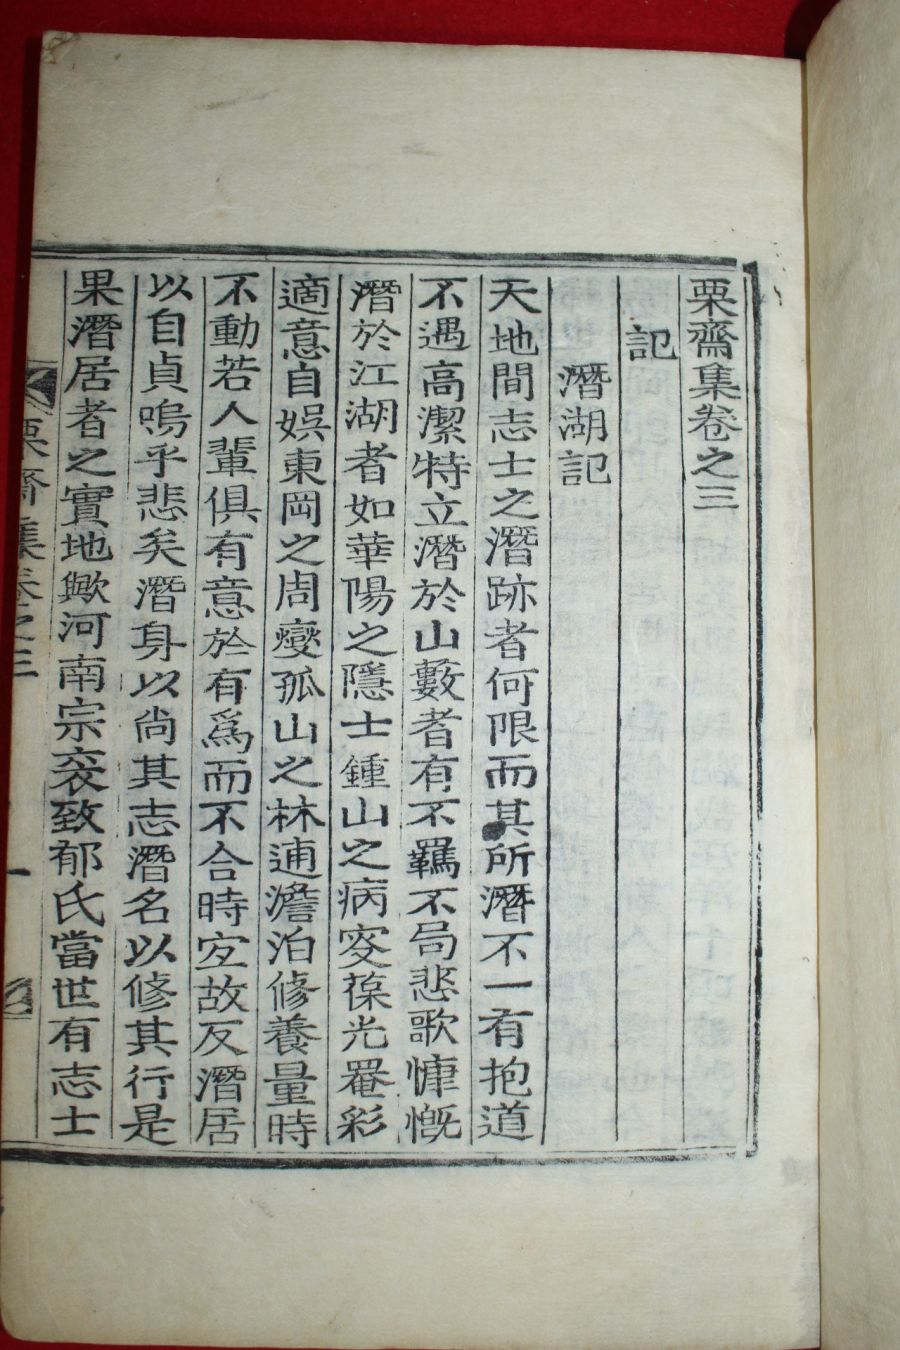 栗齋集卷之三
記
潛湖記
天地間志士之潛跡者何限而其所潛不一有抱道
不遇高潔特立潛於山藪者有不羈不局悲歌慷慨
潛於江湖者如華陽之隱士鍾山之病叟葆光罨彩
適意自娛東岡之周燮孤山之林逋澹泊修養量時
不動若人輩俱有意於有爲而不合時宜故反潛居
以自貞嗚乎悲矣潛身以尙其志潛名以修其行是
果潛居者之實地歟河南宗袞致郁氏當世有志士
栗齋集卷之三
一